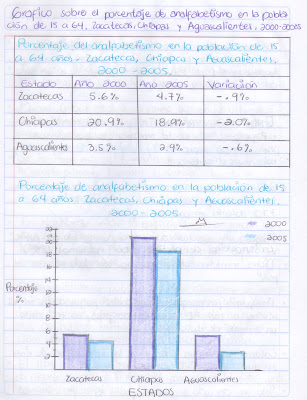 Gráfico sobre el porcentaje de analfabetismo en la pobla-
ción de 15 a 64, Zacatecas, Chiapas y Aguascalientes, 2000-2005
Porcentaje del analfabetismo en la población de 15
a 64 años - Zacatecas, Chiapas y Aguascalientes,
2000-2005.
Estado Año 2000 Año 2005 Variación
Zacatecas 5.6% 4.7% -.9%
Chiapas 20.9% 18.9% -2.0%
Aguascalientes 3.5% 2.9% -.6%
Porcentaje de analfabetismo en la población de 15
a 64 años. Zacatecas, Chiapas y Aguascalientes,
2000-2005.
2000
2005
22
20
18
16
14
12
10
8
6
4
2
Porcentaje
%
Zacatecas Chiapas Aguascalientes
ESTADOS